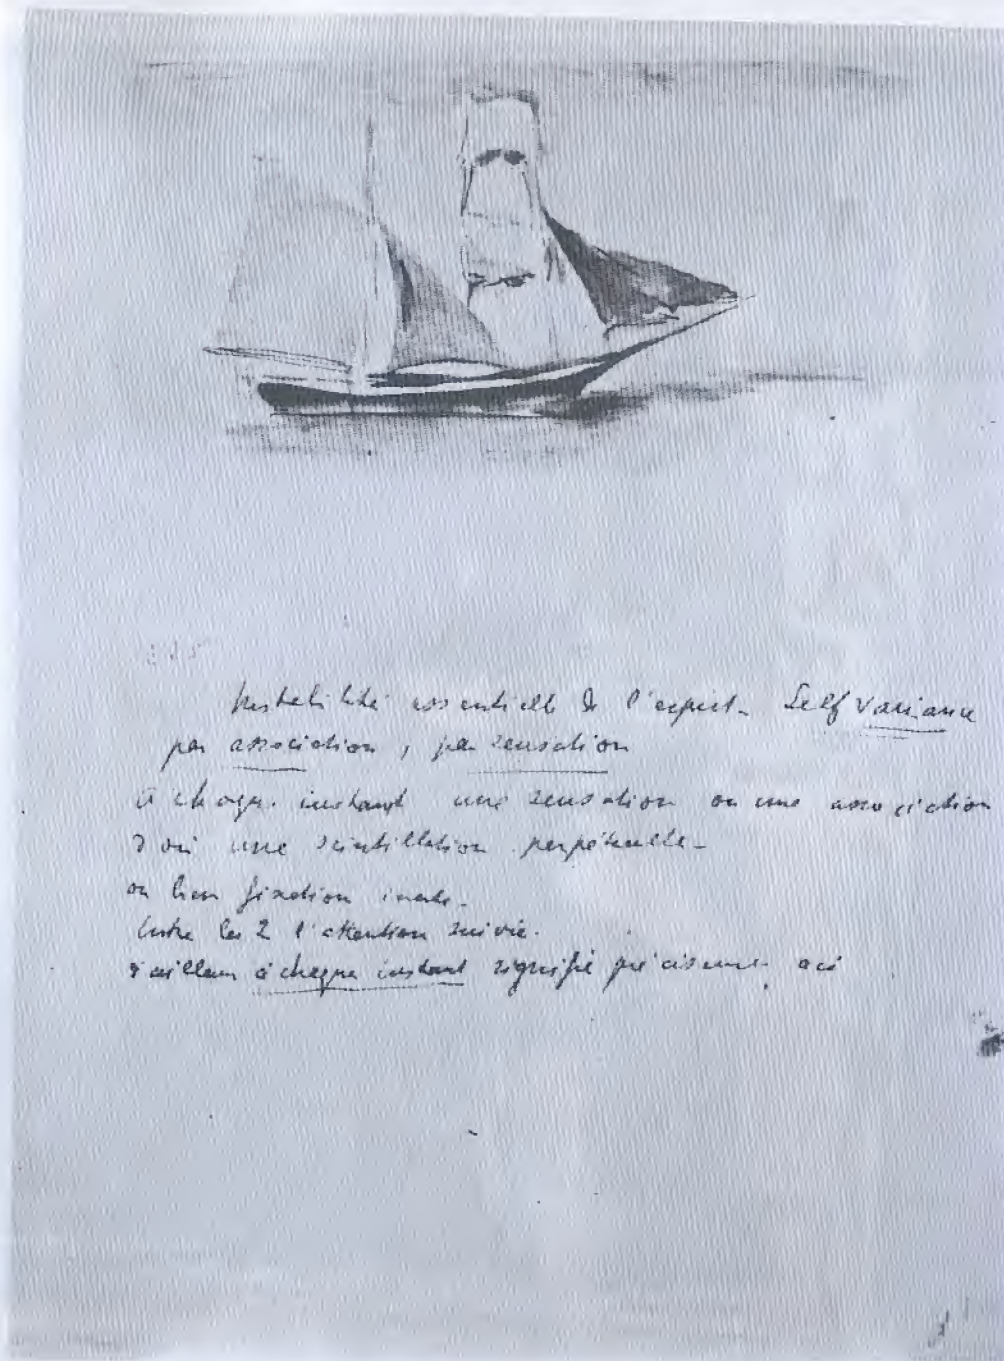 Instabilité essentielle de l'esprit - Self variance
par association, par sensation
à chaque instant une sensation ou une association
d'où une scintillation perpétuelle -
ou bien fixation
Entre les 2 l'attention suivie.
d'ailleurs à chaque instant signifie précisément ceci